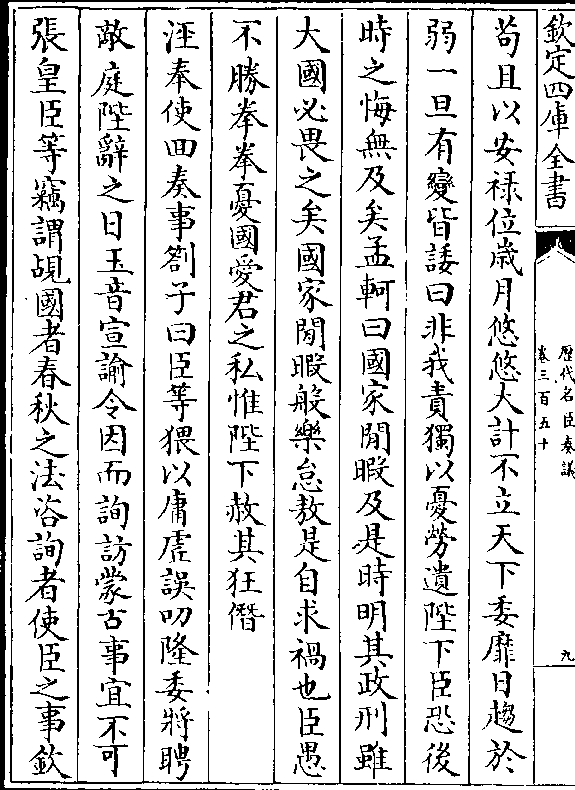 欽定四庫全書
歷代名臣奏議
卷三百五十
九
苟且以安祿位歲月悠悠大計不立天下委靡日趨於
弱一旦有變皆諉曰非我責獨以憂勞遺陛下臣恐後
時之悔無及矣孟軻曰國家閒暇及是時明其政刑雖
大國必畏之矣國家閒暇般樂怠敖是自求禍也臣愚
不勝拳拳憂國愛君之私惟陛下赦其狂僭
涇奉使回奏事劄子曰臣等猥以庸虛誤叨隆委將聘
敵庭陛辭之日玉音宣諭令因而詢訪蒙古事宜不可
張皇臣等竊謂覘國者春秋之法咨詢者使臣之事欽